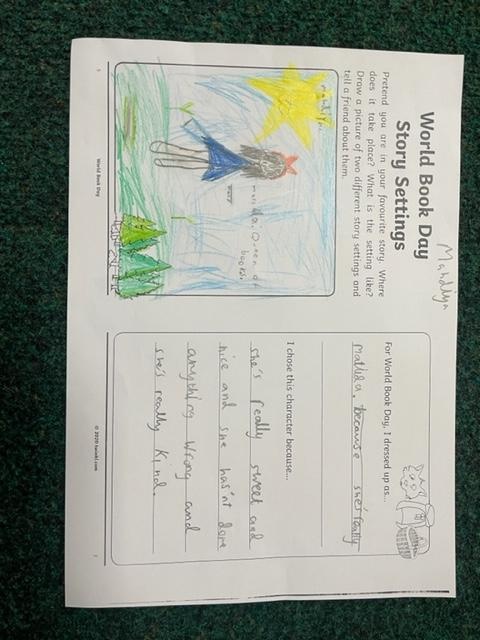 Mahdiya
World Book Day
Story Settings
Pretend you are in your favourite story. Where
does it take place? What is the setting like?
Draw a picture of two different story settings and
tell a friend about them.
matilda. Queen of
books.
World Book Day
For World Book Day, I dressed up as...
Matilda. because she's really
I chose this character because...
she's really sweet and
nice and she has'nt done
anything wrong and
she's really kind.
© 2020 twinkl.com